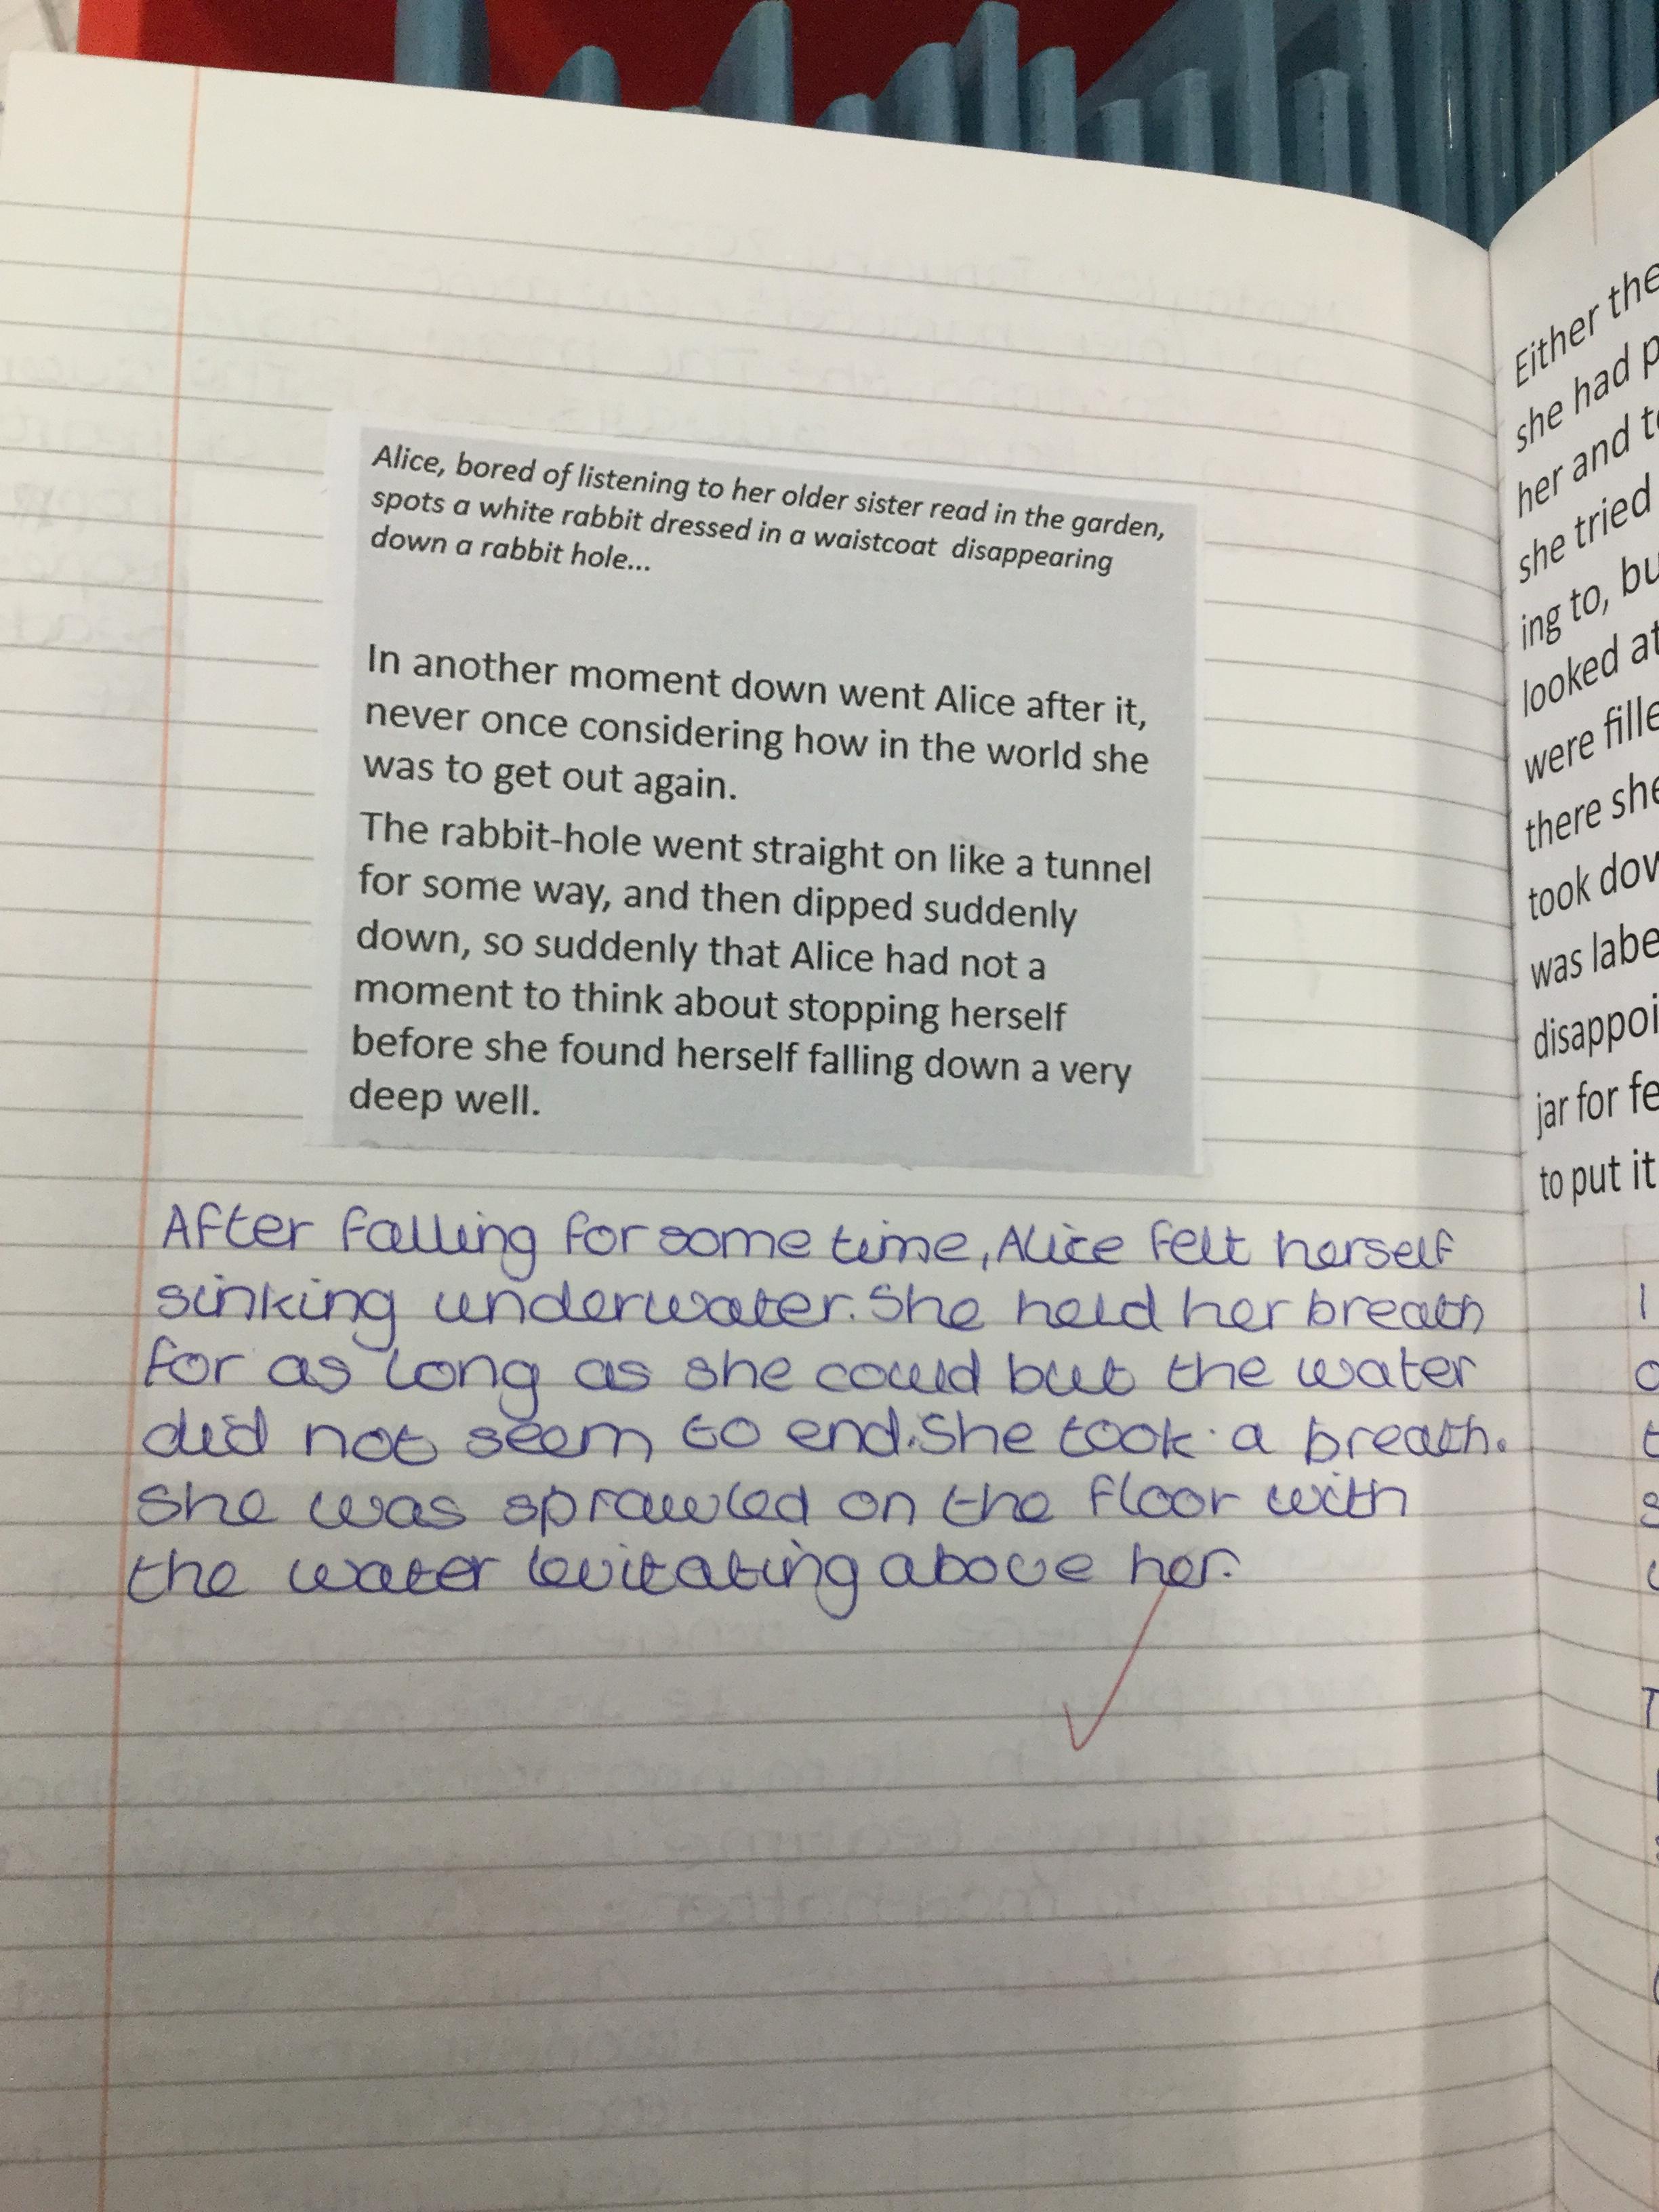 Alice, bored of listening to her older sister read in the garden,
spots a white rabbit dressed in a waistcoat disappearing
down a rabbit hole...
In another moment down went Alice after it,
never once considering how in the world she
was to get out again.
The rabbit-hole went straight on like a tunnel
for some way, and then dipped suddenly
down, so suddenly that Alice had not a
moment to think about stopping herself
before she found herself falling down a very
deep well.
After falling for some time, Alice felt herself
sinking underwater. She held her breath
for as long as she could but the water
did not seem to end. She took a breath.
She was sprawled on the floor with
the water levitating above her.
Either the
she had p
her and t
she tried
ing to, bu
looked at
were fille
there she
took dow
was labe
disappoi
jar for fe
to put it